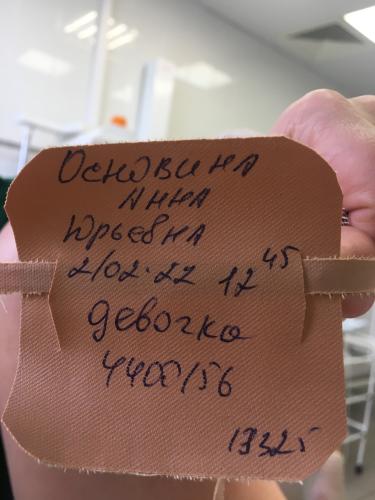 Основина
Анна
Юрьевна
2/02.22 12 45
девочка
4400/56
13325